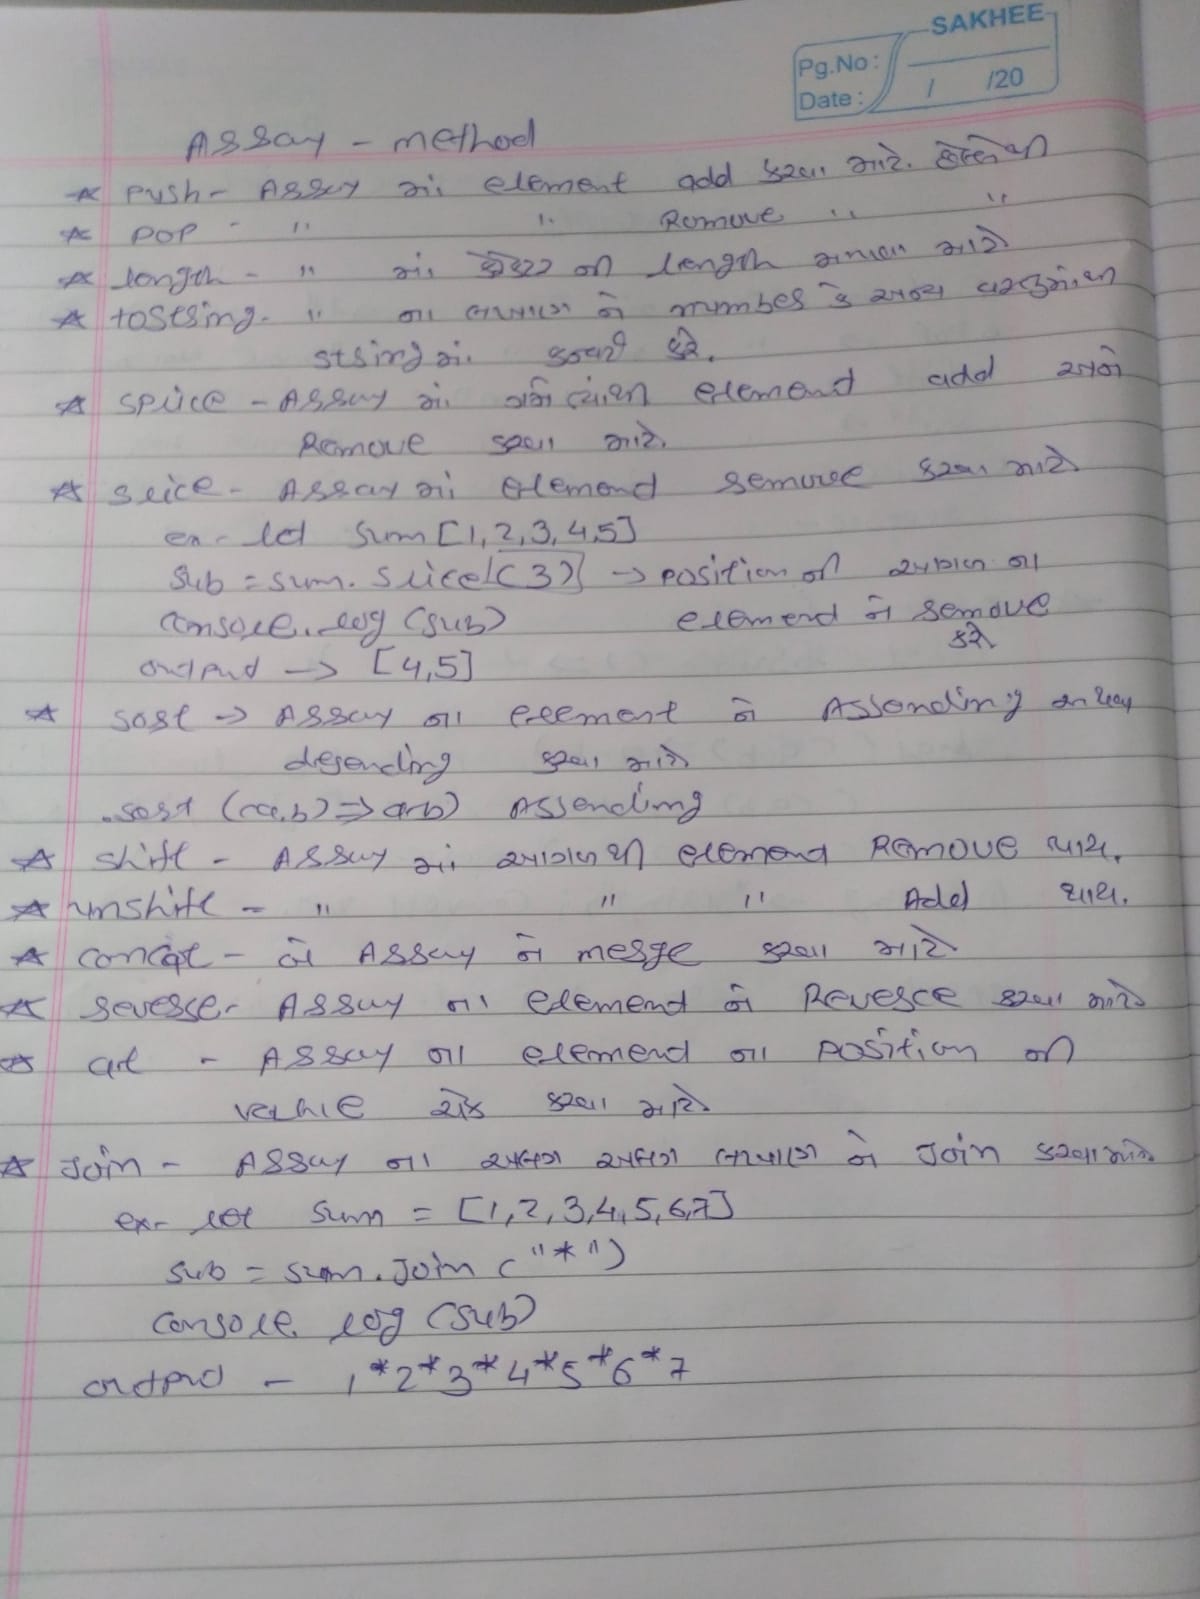 SAKHEE
Pg.No:
Date: / /20
Array - method
* push - Array માં element add કરવા માટે. છેલ્લેથી
* pop - " " Remove " "
* length - " માં ની length જાણવા માટે
* tostring - " ના બધાજ ને number કે અન્ય
string માં કન્વર્ટ કરે.
* splice - Array માં ગમે ત્યાંથી elemend add અને
Remove કરવા માટે.
* slice - Array માં elemend remove કરવા માટે
ex - let sum [1,2,3,4,5]
sub = sum. slice (3) -> position ની આગળ ના
console.log (sub) elemend ને remove
કરે
output -> [4,5]
* sort -> Array ના element ને Assending અથવા
desending કરવા માટે
.sort ((a,b) => a-b) Assending
* shift - Array માં આગળ થી elemend Remove થાય.
* unshift - " " " Add થાય.
* concat - બે Array ને merge કરવા માટે
* reverse - Array ના elemend ને Reverce કરવા માટે
* at - Array ના elemend ના position ની
value ચેક કરવા માટે
* Join - Array ના અલગ અલગ ને Join કરવા માટે
ex- let sum = [1,2,3,4,5,6,7]
sub = sum. Join ("*")
console. log (sub)
output - 1*2*3*4*5*6*7